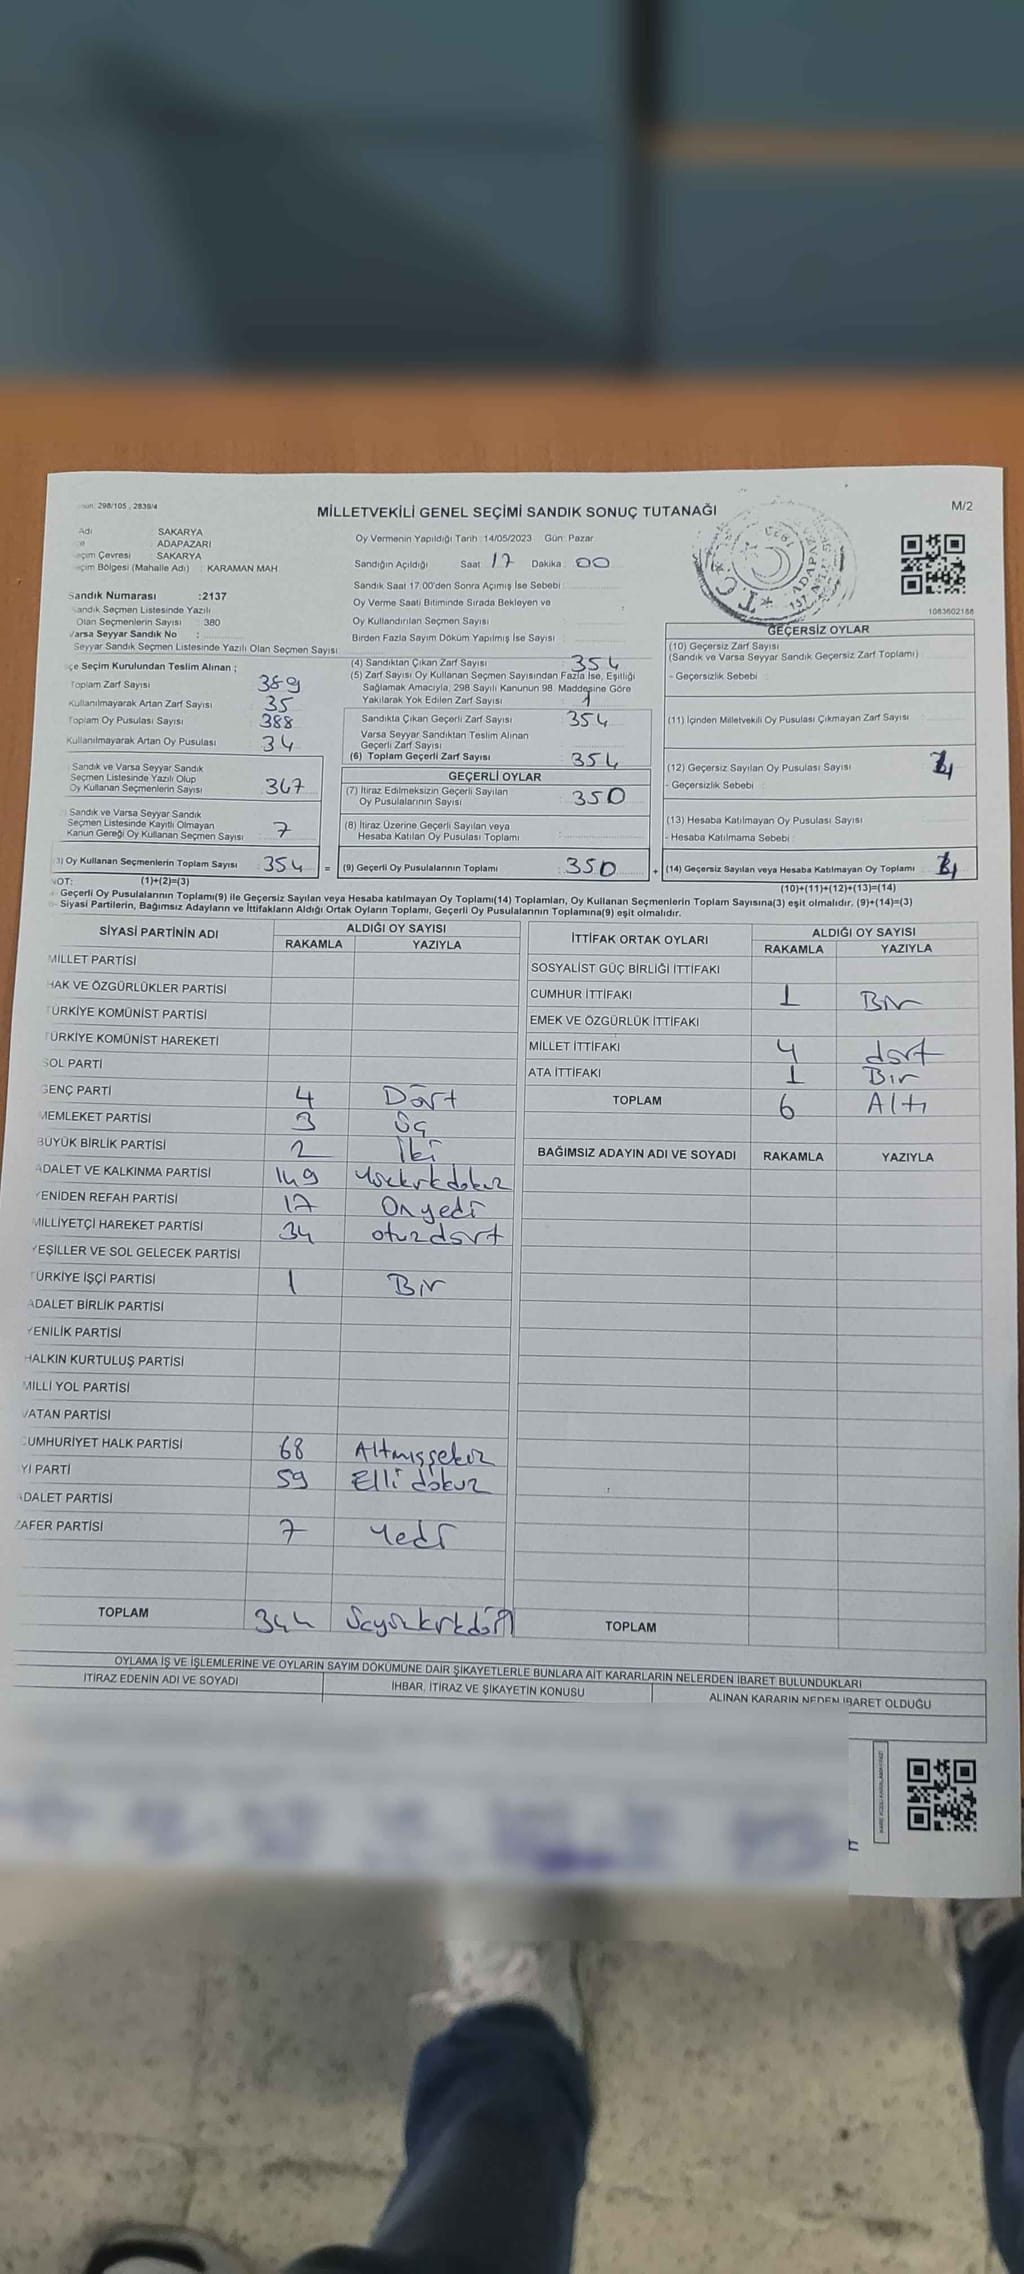 298/105 , 2839/4
MİLLETVEKİLİ GENEL SEÇİMİ SANDIK SONUÇ TUTANAĞI
M/2
Adı SAKARYA
ADAPAZARI
eçim Çevresi : SAKARYA
eçim Bölgesi (Mahalle Adı) : KARAMAN MAH.
Sandık Numarası :2137
Sandık Seçmen Listesinde Yazılı
Olan Seçmenlerin Sayısı : 380
Varsa Seyyar Sandık No :
Seyyar Sandık Seçmen Listesinde Yazılı Olan Seçmen Sayısı
çe Seçim Kurulundan Teslim Alınan ;
Toplam Zarf Sayısı 389
Kullanılmayarak Artan Zarf Sayısı 35
Toplam Oy Pusulası Sayısı 388
Kullanılmayarak Artan Oy Pusulası 34
Sandık ve Varsa Seyyar Sandık
Seçmen Listesinde Yazılı Olup
Oy Kullanan Seçmenlerin Sayısı 347
Sandık ve Varsa Seyyar Sandık
Seçmen Listesinde Kayıtlı Olmayan
Kanun Gereği Oy Kullanan Seçmen Sayısı : 7
3) Oy Kullanan Seçmenlerin Toplam Sayısı 354 =
(1)+(2)=(3)
Oy Vermenin Yapıldığı Tarih :14/05/2023 Gün: Pazar
Sandığın Açıldığı Saat : 17 Dakika : 00
Sandık Saat 17:00'den Sonra Açımış İse Sebebi :
Oy Verme Saati Bitiminde Sırada Bekleyen ve
Oy Kullandırılan Seçmen Sayısı
Birden Fazla Sayım Döküm Yapılmış İse Sayısı :
(4) Sandıktan Çıkan Zarf Sayısı 354
(5) Zarf Sayısı Oy Kullanan Seçmen Sayısından Fazla İse, Eşitliği
Sağlamak Amacıyla, 298 Sayılı Kanunun 98. Maddesine Göre
Yakılarak Yok Edilen Zarf Sayısı : 1
Sandıkta Çıkan Geçerli Zarf Sayısı : 354
Varsa Seyyar Sandıktan Teslim Alınan
Geçerli Zarf Sayısı
(6) Toplam Geçerli Zarf Sayısı : 354
GEÇERLİ OYLAR
(7) İtiraz Edilmeksizin Geçerli Sayılan
Oy Pusulalarının Sayısı : 350
(8) İtiraz Üzerine Geçerli Sayılan veya
Hesaba Katılan Oy Pusulaları Toplamı :
(9) Geçerli Oy Pusulalarının Toplamı : 350 +
1083602188
GEÇERSİZ OYLAR
(10) Geçersiz Zarf Sayısı
(Sandık ve Varsa Seyyar Sandık Geçersiz Zarf Toplamı)
- Geçersizlik Sebebi :
(11) İçinden Milletvekili Oy Pusulası Çıkmayan Zarf Sayısı
(12) Geçersiz Sayılan Oy Pusulası Sayısı 4
- Geçersizlik Sebebi :
(13) Hesaba Katılmayan Oy Pusulası Sayısı
- Hesaba Katılmama Sebebi :
(14) Geçersiz Sayılan veya Hesaba Katılmayan Oy Toplamı : 4
(10)+(11)+(12)+(13)=(14)
NOT:
Geçerli Oy Pusulalarının Toplamı(9) ile Geçersiz Sayılan veya Hesaba katılmayan Oy Toplamı(14) Toplamları, Oy Kullanan Seçmenlerin Toplam Sayısına(3) eşit olmalıdır. (9)+(14)=(3)
Siyasi Partilerin, Bağımsız Adayların ve İttifakların Aldığı Ortak Oyların Toplamı, Geçerli Oy Pusulalarının Toplamına(9) eşit olmalıdır.
SİYASİ PARTİNİN ADI ALDIĞI OY SAYISI
RAKAMLA YAZIYLA
MİLLET PARTİSİ
HAK VE ÖZGÜRLÜKLER PARTİSİ
TÜRKİYE KOMÜNİST PARTİSİ
TÜRKİYE KOMÜNİST HAREKETİ
SOL PARTİ
GENÇ PARTİ 4 Dört
MEMLEKET PARTİSİ 3 Üç
BÜYÜK BİRLİK PARTİSİ 2 İki
ADALET VE KALKINMA PARTİSİ 149 Yüzkırkdokuz
YENİDEN REFAH PARTİSİ 17 Onyedi
MİLLİYETÇİ HAREKET PARTİSİ 34 otuzdört
YEŞİLLER VE SOL GELECEK PARTİSİ
TÜRKİYE İŞÇİ PARTİSİ 1 Bir
ADALET BİRLİK PARTİSİ
YENİLİK PARTİSİ
HALKIN KURTULUŞ PARTİSİ
MİLLİ YOL PARTİSİ
VATAN PARTİSİ
CUMHURİYET HALK PARTİSİ 68 Altmışsekiz
İYİ PARTİ 59 Elli dokuz
ADALET PARTİSİ
ZAFER PARTİSİ 7 Yedi
TOPLAM 344 Üçyüzkırkdört
İTTİFAK ORTAK OYLARI ALDIĞI OY SAYISI
RAKAMLA YAZIYLA
SOSYALİST GÜÇ BİRLİĞİ İTTİFAKI
CUMHUR İTTİFAKI 1 Bir
EMEK VE ÖZGÜRLÜK İTTİFAKI
MİLLET İTTİFAKI 4 dört
ATA İTTİFAKI 1 Bir
TOPLAM 6 Altı
BAĞIMSIZ ADAYIN ADI VE SOYADI RAKAMLA YAZIYLA
TOPLAM
OYLAMA İŞ VE İŞLEMLERİNE VE OYLARIN SAYIM DÖKÜMÜNE DAİR ŞİKAYETLERLE BUNLARA AİT KARARLARIN NELERDEN İBARET BULUNDUKLARI
İTİRAZ EDENİN ADI VE SOYADI İHBAR, İTİRAZ VE ŞİKAYETİN KONUSU ALINAN KARARIN NEDEN İBARET OLDUĞU